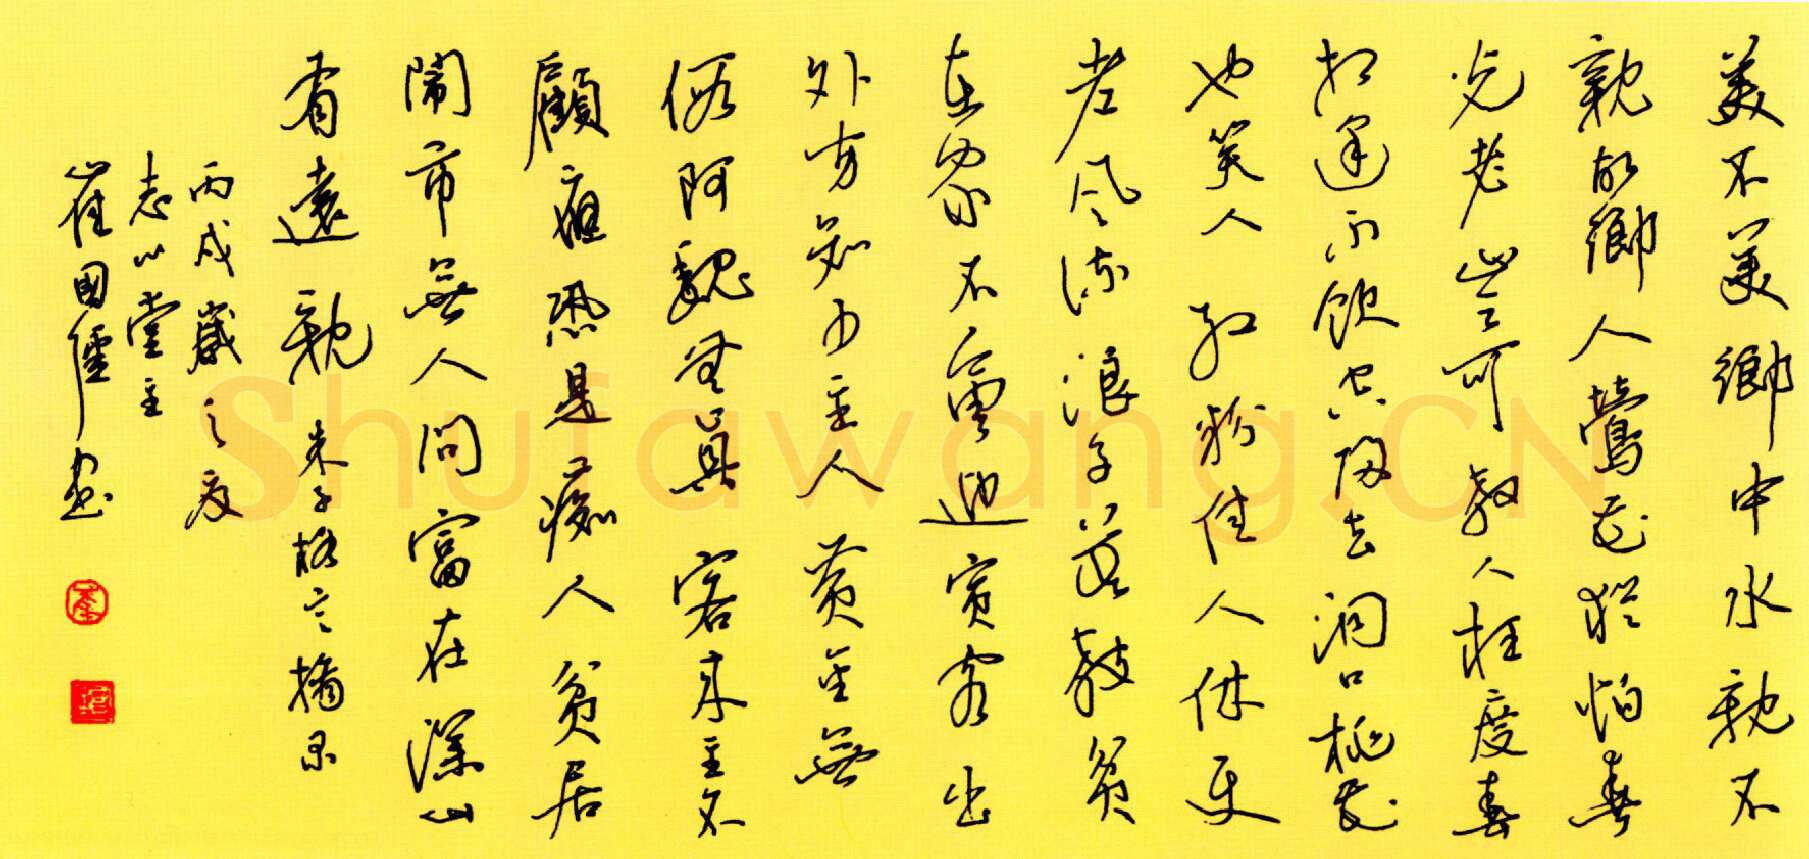 美不美鄉中水親不
親故鄉人鶯花猶怕春
光老豈可教人枉度春
相逢不飲空歸去洞口桃花
也笑人紅粉佳人休更
老風流浪子莫教貧
在家不會迎賓客出
外方知少主人黃金無
假阿魏無真客來主不
顧應恐是痴人貧居
鬧市無人問富在深山
有遠親 朱子格言摘录
丙戌歲之夏
志以堂主
崔國書
Shufawang.CN